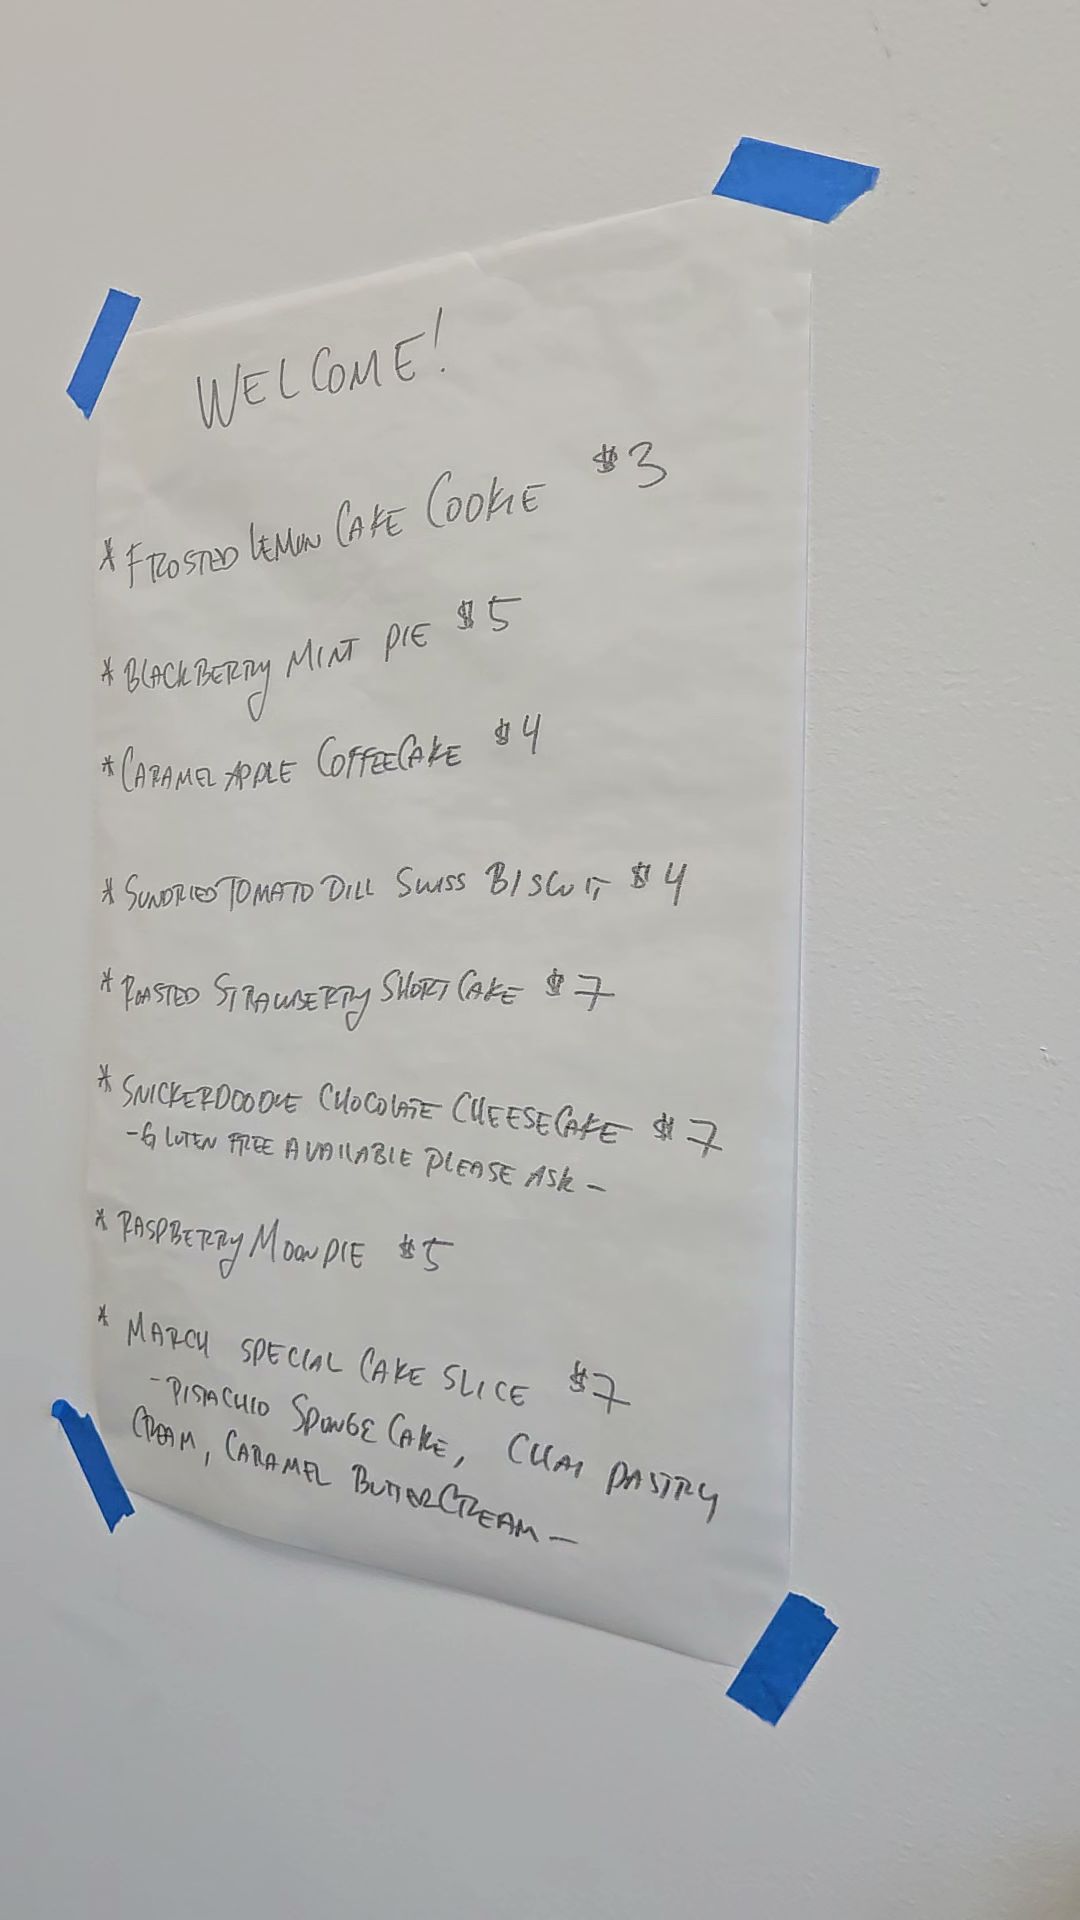 WELCOME!
* FROSTED LEMON CAKE COOKIE $3
* BLACKBERRY MINT PIE $5
* CARAMEL APPLE COFFEECAKE $4
* SUNDRIED TOMATO DILL SWISS BISCUIT $4
* ROASTED STRAWBERRY SHORTCAKE $7
* SNICKERDOODLE CHOCOLATE CHEESECAKE $7
- GLUTEN FREE AVAILABLE PLEASE ASK -
* RASPBERRY MOONPIE $5
* MARCH SPECIAL CAKE SLICE $7
- PISTACHIO SPONGE CAKE, CHAI PASTRY
CREAM, CARAMEL BUTTERCREAM -